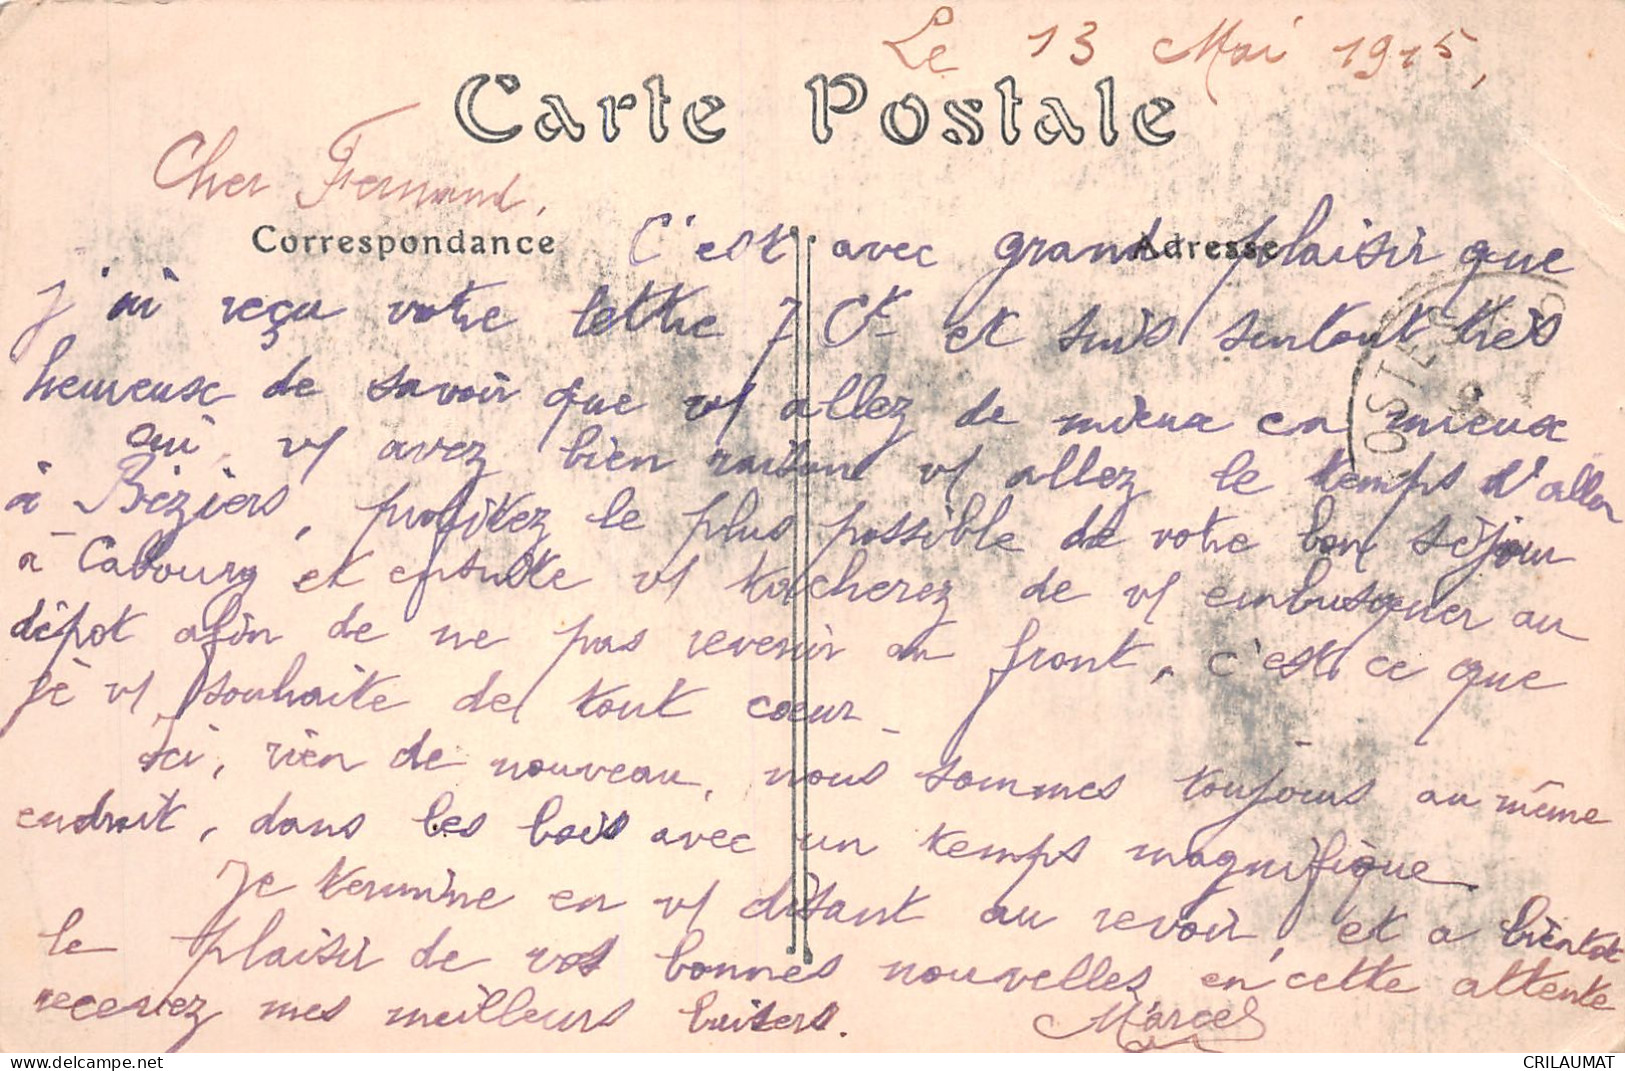 Le 13 Mai 1915,
Carte Postale
Cher Fernand,
Correspondance
Adresse
C'est avec grand plaisir que
j'ai reçu votre lettre 7 Ct et suis surtout très
heureuse de savoir que v/ allez de mieux en mieux
oui, v/ avez bien raison v/ allez le temps d'aller
à Béziers, profitez le plus possible de votre bon séjour
à Cabourg et ensuite v/ tacherez de v/ embusquer au
dépot afin de ne pas revenir au front, c'est ce que
je v/ souhaite de tout coeur
Ici, rien de nouveau, nous sommes toujours au même
endroit, dans les bois avec un temps magnifique.
Je termine en v/ disant au revoir, et a bientot
le plaisir de vos bonnes nouvelles, en cette attente
recevez mes meilleurs baisers.
Marcel
POSTE
CRILAUMAT